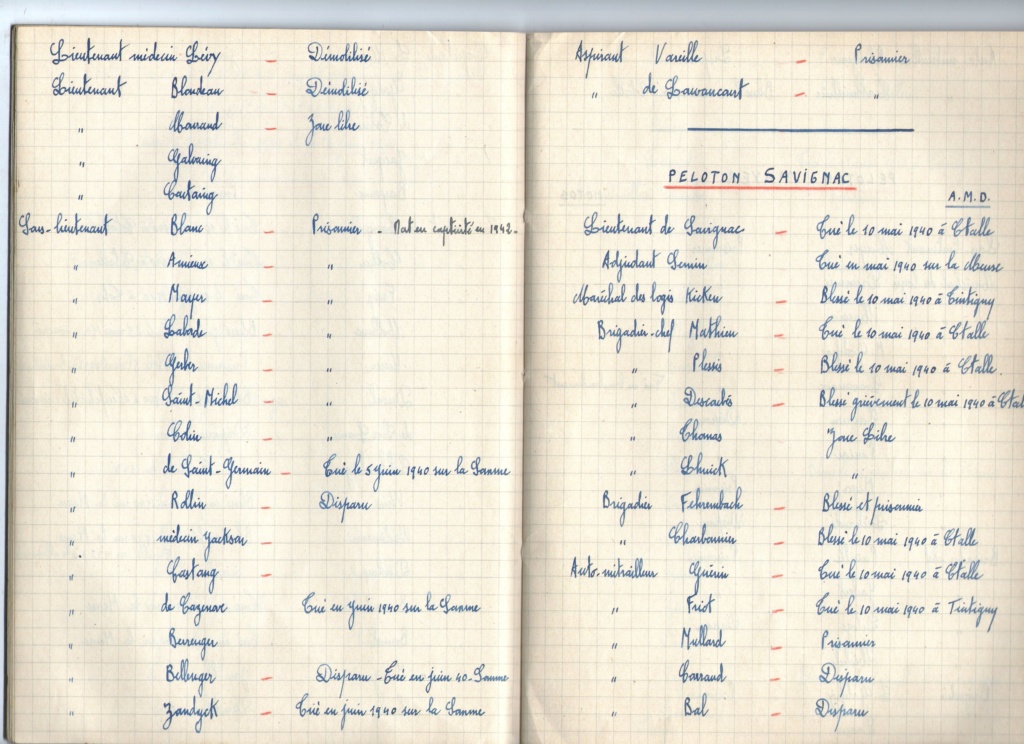 Lieutenant médecin Lévy - Démobilisé
Lieutenant Blondeau - Démobilisé
" Morand - Zone libre
" Galvaing
" Castaing -
Sous-lieutenant Blanc - Prisonnier - Mort en captivité en 1942 -
" Amieux - "
" Mayer - "
" Labade - "
" Gerber - "
" Saint-Michel - "
" Colin - "
" de Saint-Germain - Tué le 5 Juin 1940 sur la Somme
" Rollin - Disparu
" médecin Jackson -
" Castang -
" de Cazenove - Tué en Juin 1940 sur la Somme
" Berrenger
" Bellanger - Disparu - Tué en juin 40 - Somme
" Zandyck - Tué en juin 1940 sur la Somme
Aspirant Vareille - Prisonnier
" de Lawoncourt - "
PELOTON SAVIGNAC
A.M.D.
Lieutenant de Savignac - Tué le 10 mai 1940 à Etalle
Adjudant Semin - Tué en mai 1940 sur la Meuse
Maréchal des logis Kicken - Blessé le 10 mai 1940 à Tintigny
Brigadier-chef Mathieu - Tué le 10 mai 1940 à Etalle
" Plessis - Blessé le 10 mai 1940 à Etalle.
" Descadés - Blessé grièvement le 10 mai 1940 à Etal
" Thomas - Zone Libre
" - "
Brigadier Fehrembach - Blessé et prisonnier
" Charbonnier - Blessé le 10 mai 1940 à Etalle
Auto-mitrailleur Guérin - Tué le 10 mai 1940 à Etalle
" Friot - Tué le 10 mai 1940 à Tintigny
" Mullard - Prisonnier
" Carraud - Disparu
" Bal - Disparu